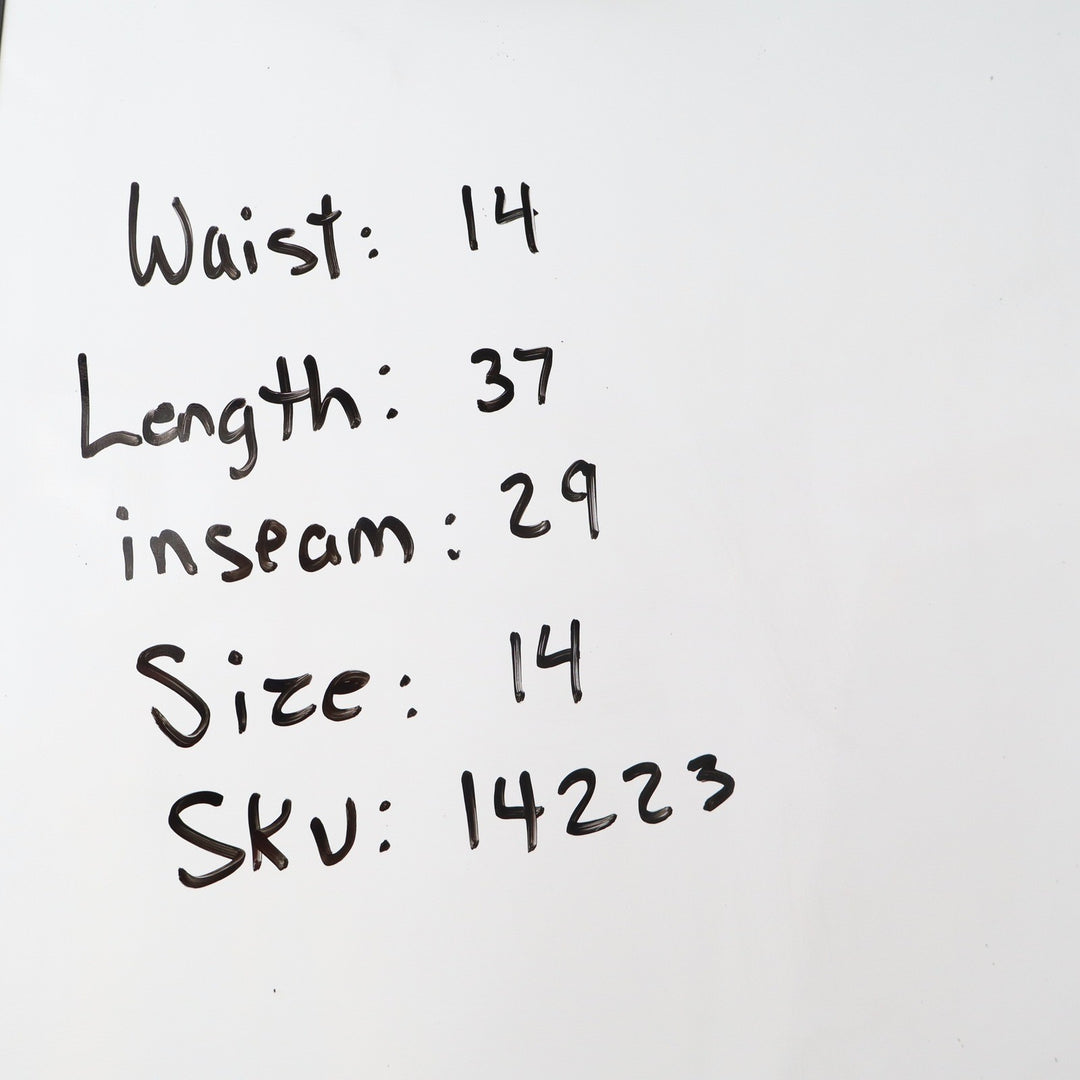 Waist: 14
Length: 37
inseam: 29
Size: 14
SKU: 14223